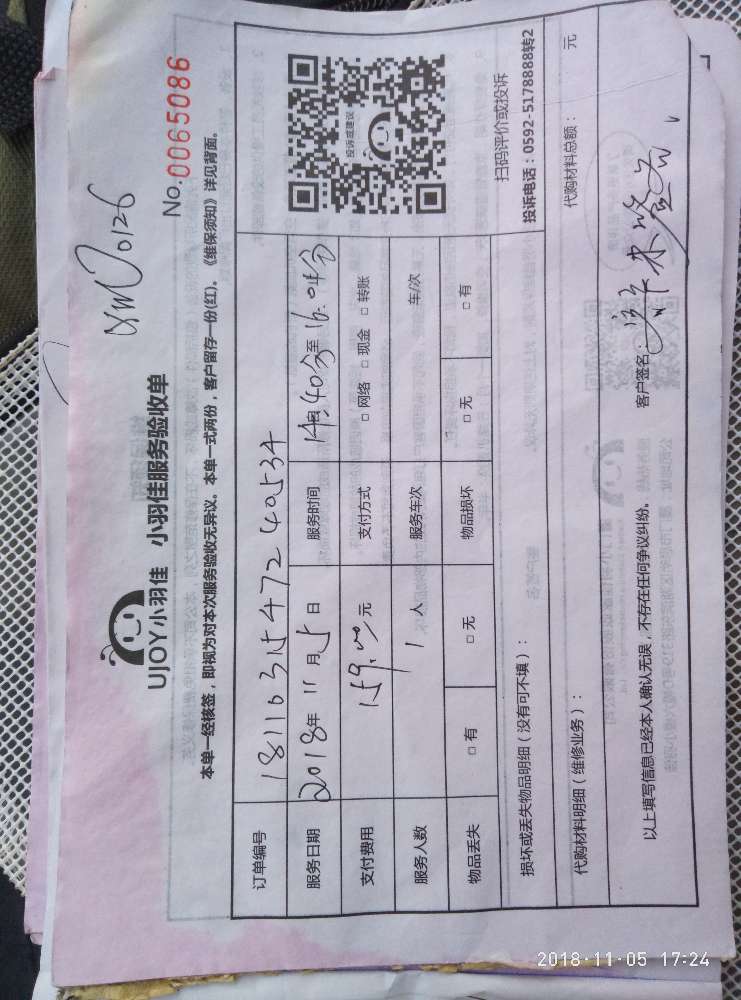 XM00126
UJOY小羽佳 小羽佳服务验收单
No.0065086
本单一经核签,即视为对本次服务验收无异议。本单一式两份,客户留存一份(红)。《维保须知》详见背面。
订单编号 181103154724 0534
服务日期 2018年 11月5日 服务时间 14:40分至16:04分
支付费用 159.00元 支付方式 □网络 □现金 □转账
服务人数 1 人 服务车次 车/次
物品丢失 □有 □无 物品损坏 □无 □有
投诉或建议
扫码评价或投诉
投诉电话:0592-5178888转2
损坏或丢失物品明细(没有可不填):
代购材料明细(维修业务): 代购材料总额: 元
以上填写信息已经本人确认无误,不存在任何争议纠纷。 客户签名:
2018·11·05 17:24